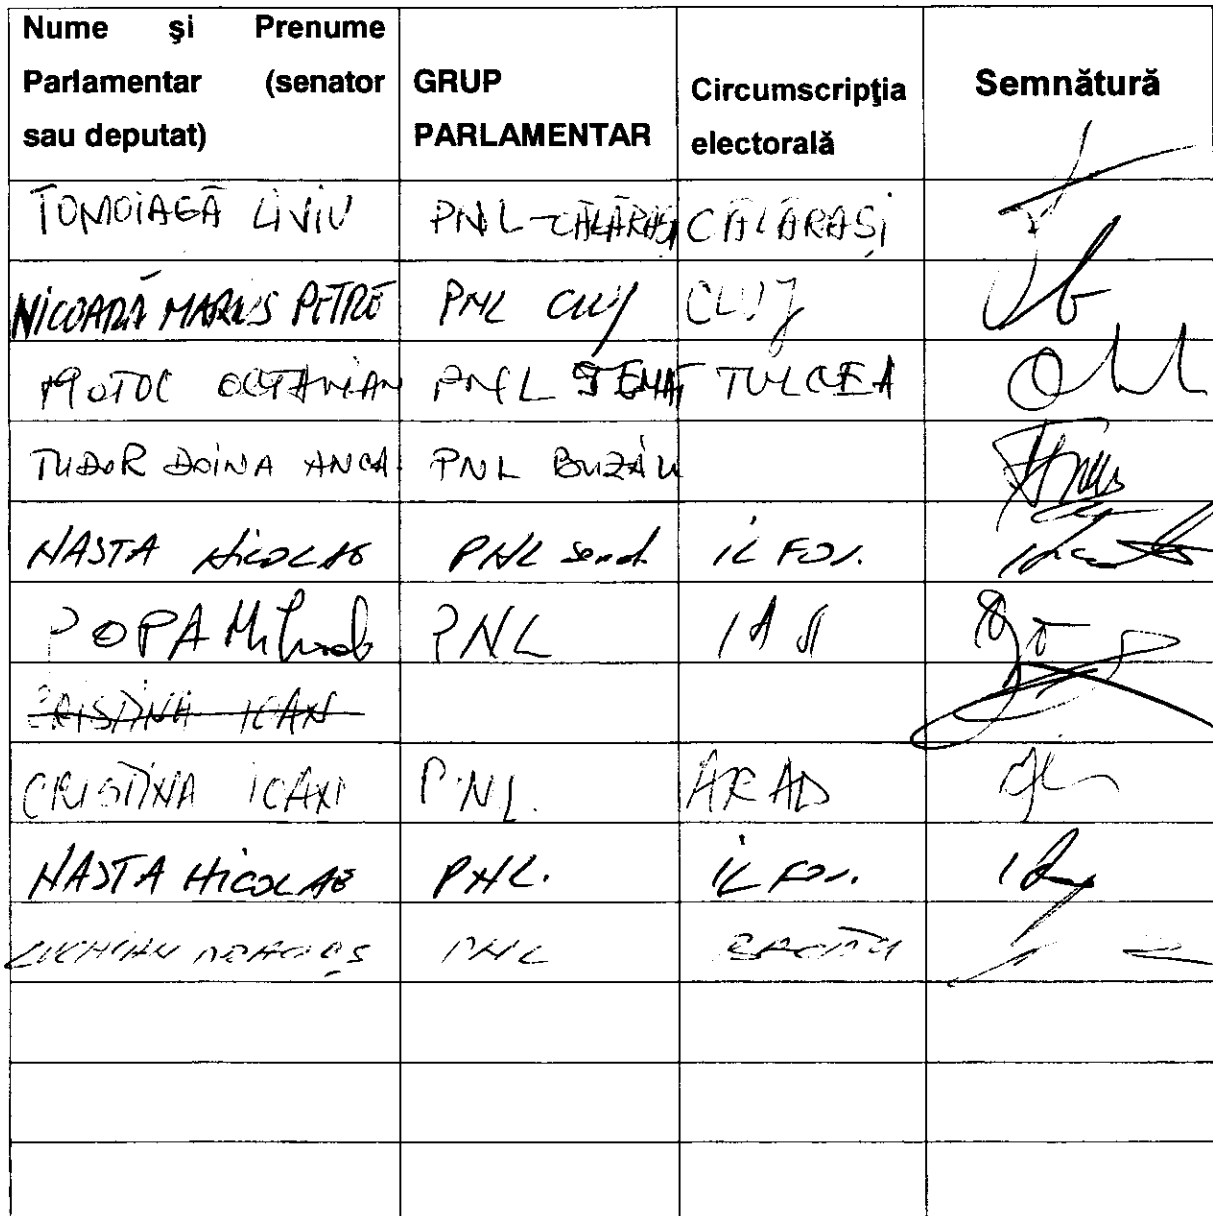 Nume și Prenume
Parlamentar (senator
sau deputat)
GRUP
PARLAMENTAR
Circumscripția
electorală
Semnătură
TOMOIAGĂ LIVIU PNL-CĂLĂRAȘI CĂLĂRAȘI
NICOARĂ MARIUS PETRE PNL CLUJ CLUJ
MOTOC OCTAVIAN PNL SENAT TULCEA
TUDOR DOINA ANCA PNL BUZĂU
NASTA NICOLAE PNL senat. ILFOV.
POPA Mihaela PNL IAȘI
CRISTINA ICAN
CRISTINA ICAN PNL. ARAD
NASTA NICOLAE PNL. ILFOV.
LUCHIAN DRAGOȘ PNL BACĂU